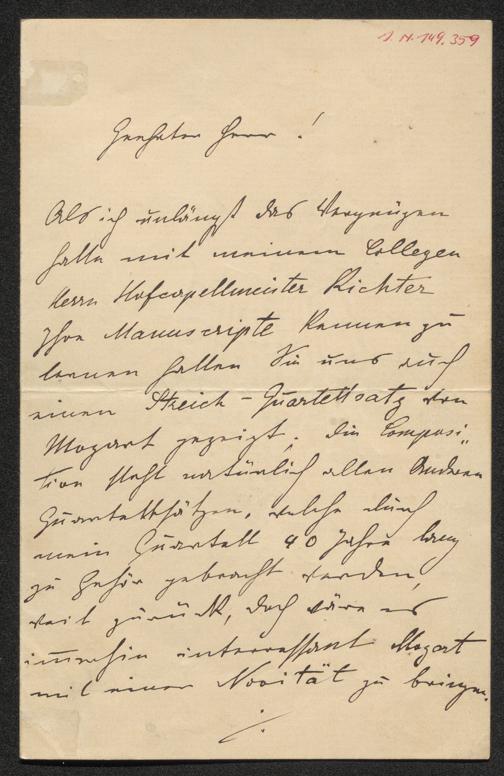 J. N. 149.359
Geehrter Herr!
Als ich unlängst das Vergnügen
hatte mit meinem Collegen
Herrn Hofcapellmeister Richter
Ihre Manuscripte kennen zu
lernen hatten Sie uns auch
einen Streich-Quartettsatz von
Mozart gezeigt. Die Composi„
tion steht natürlich allen Anderen
Quartettsätzen, welche durch
mein Quartett 40 Jahre lang
zu Gehör gebracht werden,
weit zurück, doch wäre es
immerhin interressant Mozart
mit einer Novität zu bringen.
./.